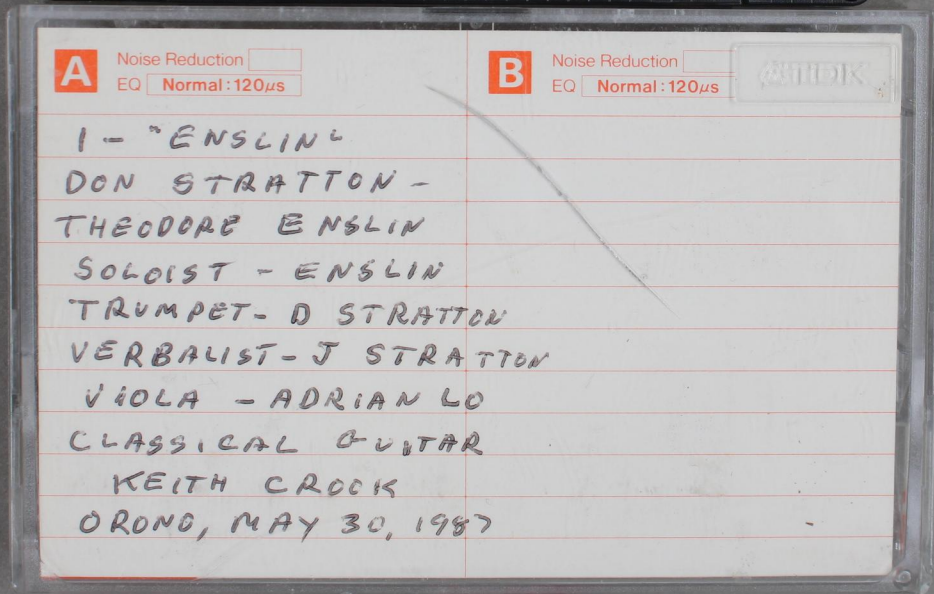 A Noise Reduction
EQ Normal : 120µs
B Noise Reduction
EQ Normal : 120µs
1 - "ENSLIN"
DON STRATTON -
THEODORE ENSLIN
SOLOIST - ENSLIN
TRUMPET - D STRATTON
VERBALIST - J STRATTON
VIOLA - ADRIAN LO
CLASSICAL GUITAR
KEITH CROOK
ORONO, MAY 30, 1987